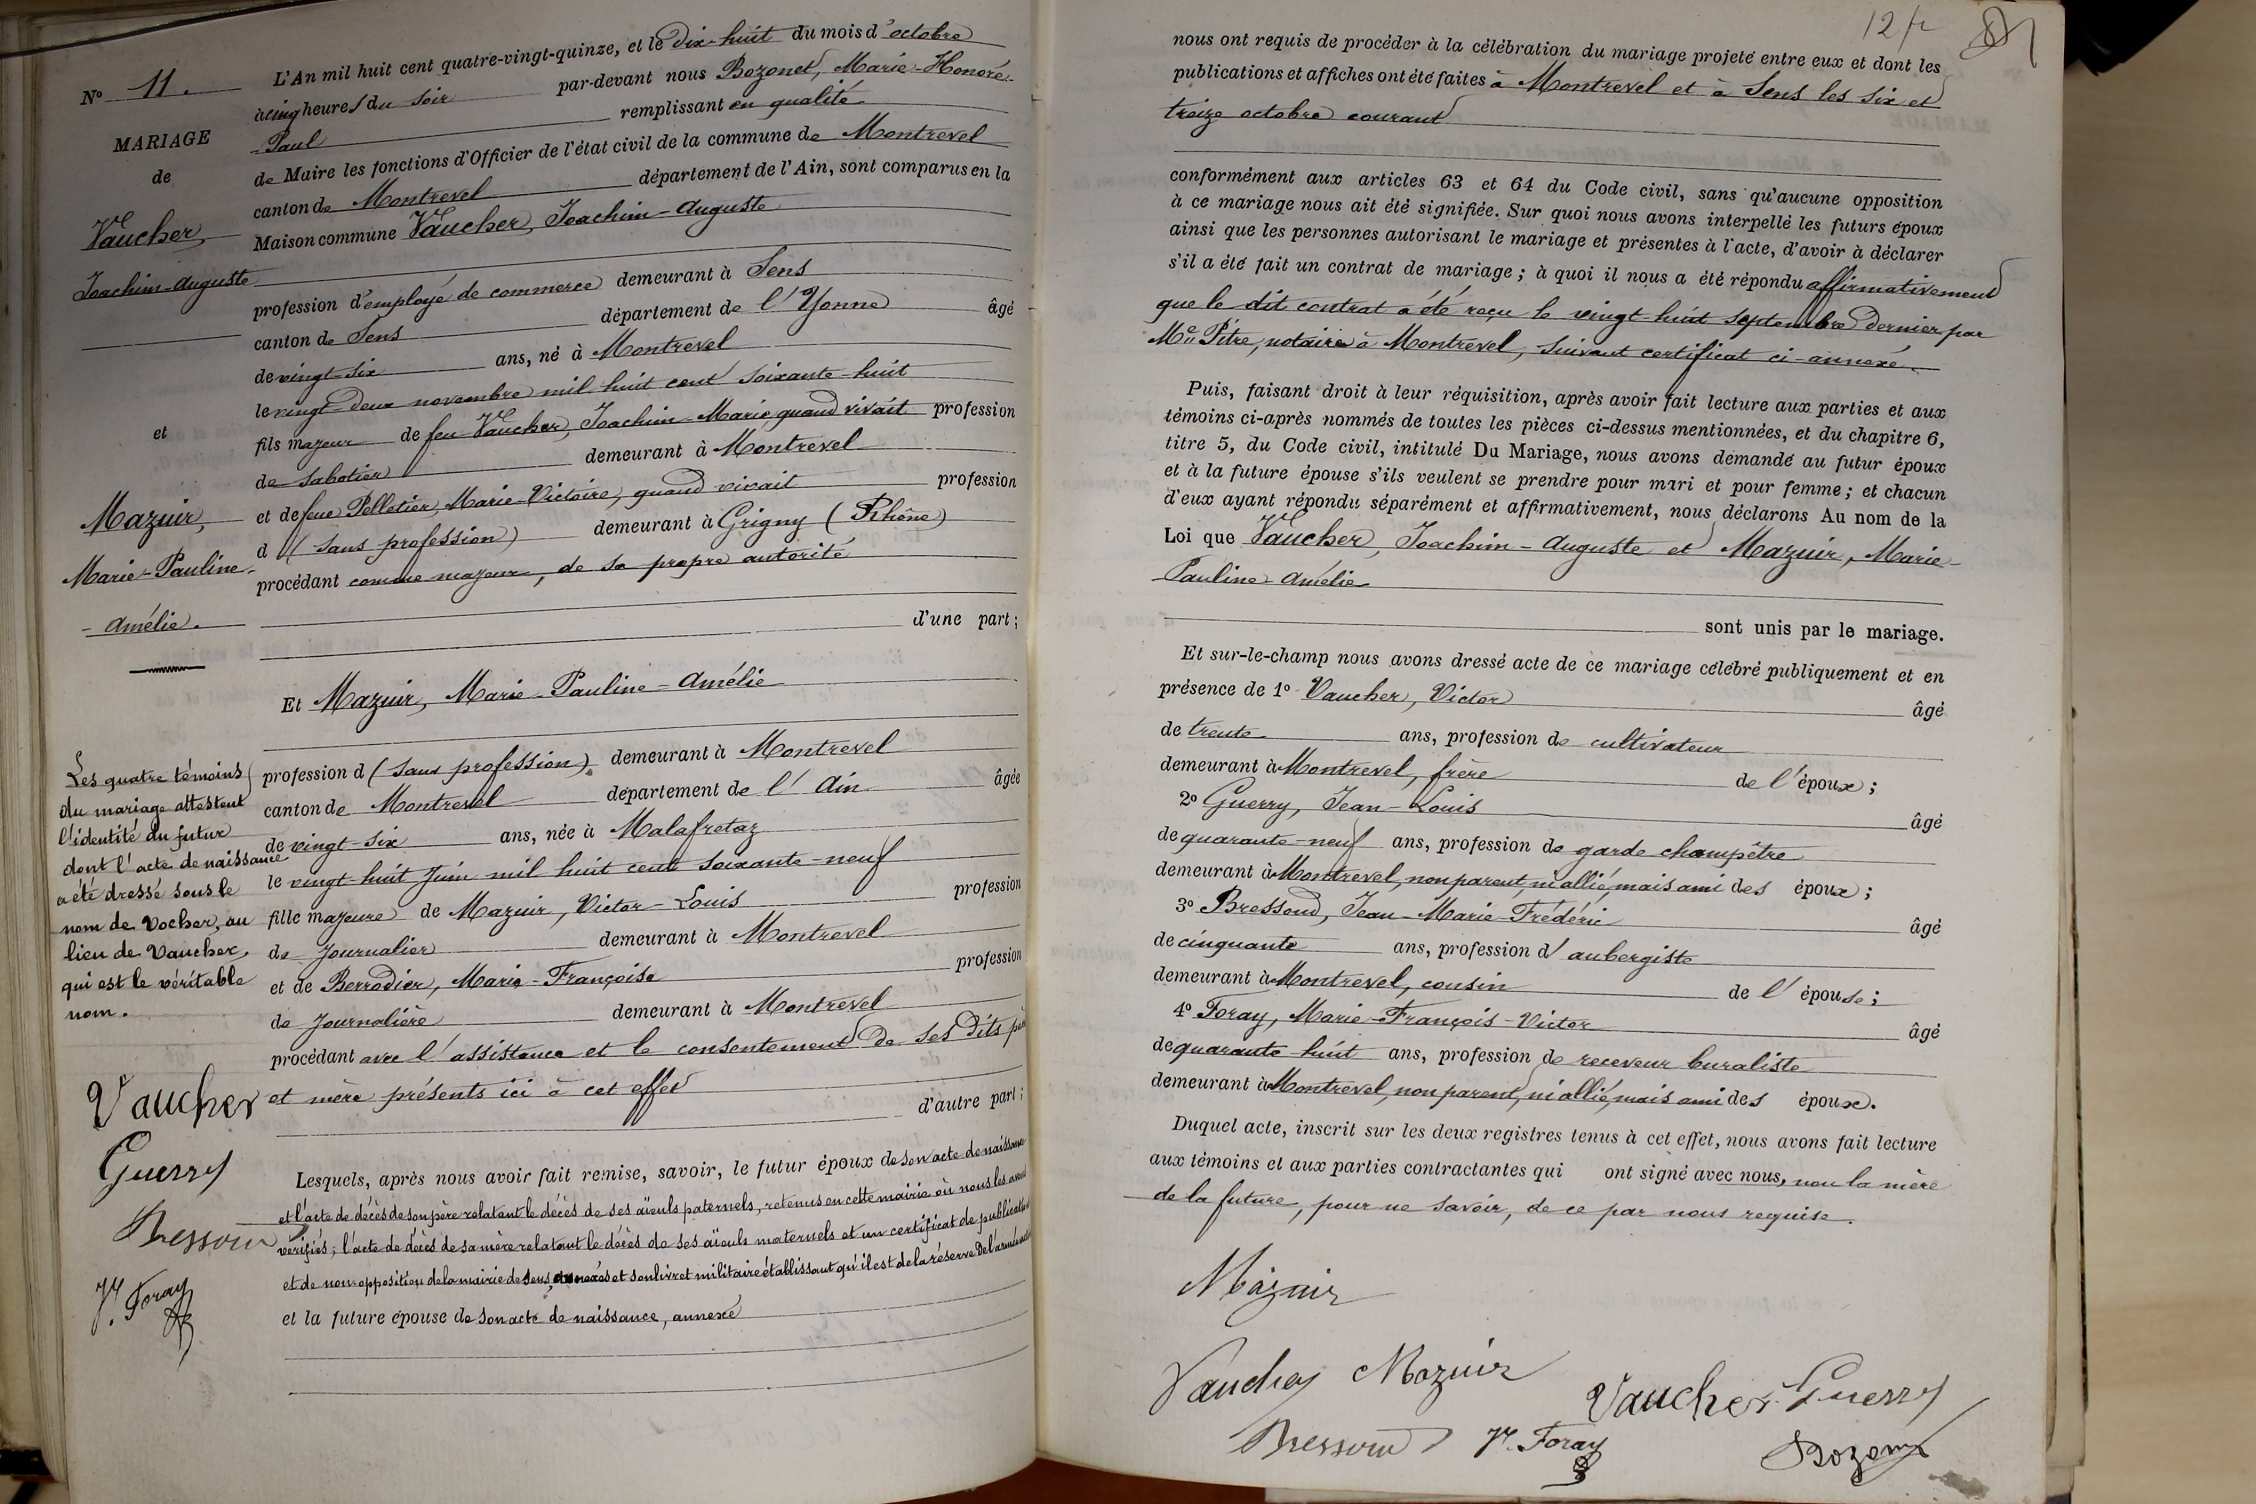 N° 11.
MARIAGE
de
Vaucher,
Joachim-Auguste
et
Mazuir,
Marie-Pauline-
-Amélie.
Les quatre témoins
du mariage attestent
l'identité du futur
dont l'acte de naissance
a été dressé sous le
nom de Vocher, au
lieu de Vaucher,
qui est le véritable
nom.
Vaucher
Guerry
Bressoud
Vr. Foray
L'An mil huit cent quatre-vingt-quinze, et le dix-huit du mois d'octobre
à cinq heures du soir par-devant nous Bozonet, Marie-Honoré-
-Paul remplissant en qualité
de Maire les fonctions d'Officier de l'état civil de la commune de Montrevel
canton de Montrevel département de l'Ain, sont comparus en la
Maison commune Vaucher, Joachim-Auguste
profession d'employé de commerce demeurant à Sens
canton de Sens département de l'Yonne âgé
de vingt-six ans, né à Montrevel
le vingt-deux novembre mil huit cent soixante-huit
fils majeur de feu Vaucher, Joachim-Marie, quand vivait profession
de sabotier demeurant à Montrevel
et de feue Pelletier, Marie-Victoire, quand vivait profession
d (sans profession) demeurant à Grigny (Rhône)
procédant comme majeur, de sa propre autorité
d'une part;
Et Mazuir, Marie-Pauline-Amélie
profession d (sans profession) demeurant à Montrevel
canton de Montrevel département de l'Ain âgée
de vingt-six ans, née à Malafretaz
le vingt-huit Juin mil huit cent soixante-neuf
fille majeure de Mazuir, Victor-Louis profession
de Journalier demeurant à Montrevel
et de Berrodier, Marie-Françoise profession
de Journalière demeurant à Montrevel
procédant avec l'assistance et le consentement de ses dits père
et mère présents ici à cet effet
d'autre part;
Lesquels, après nous avoir fait remise, savoir, le futur époux de son acte de naissance
et l'acte de décès de son père relatant le décès de ses aïeuls paternels, retenus en cette mairie où nous les avons
vérifiés; l'acte de décès de sa mère relatant le décès de ses aïeuls maternels et un certificat de publication
et de non opposition de la mairie de Sens, annexés et son livret militaire établissant qu'il est de la réserve de l'armée active
et la future épouse de son acte de naissance, annexé
nous ont requis de procéder à la célébration du mariage projeté entre eux et dont les
publications et affiches ont été faites à Montrevel et à Sens les six et
treize octobre courant
conformément aux articles 63 et 64 du Code civil, sans qu'aucune opposition
à ce mariage nous ait été signifiée. Sur quoi nous avons interpellé les futurs époux
ainsi que les personnes autorisant le mariage et présentes à l'acte, d'avoir à déclarer
s'il a été fait un contrat de mariage; à quoi il nous a été répondu affirmativement
que le dit contrat a été reçu le vingt-huit septembre dernier par
Me Pitre, notaire à Montrevel, suivant certificat ci-annexé.
Puis, faisant droit à leur réquisition, après avoir fait lecture aux parties et aux
témoins ci-après nommés de toutes les pièces ci-dessus mentionnées, et du chapitre 6,
titre 5, du Code civil, intitulé Du Mariage, nous avons demandé au futur époux
et à la future épouse s'ils veulent se prendre pour mari et pour femme; et chacun
d'eux ayant répondu séparément et affirmativement, nous déclarons Au nom de la
Loi que Vaucher, Joachim-Auguste et Mazuir, Marie-
Pauline-Amélie
sont unis par le mariage.
Et sur-le-champ nous avons dressé acte de ce mariage célébré publiquement et en
présence de 1° Vaucher, Victor âgé
de trente ans, profession de cultivateur
demeurant à Montrevel, frère de l'époux;
2° Guerry, Jean-Louis âgé
de quarante-neuf ans, profession de garde champêtre
demeurant à Montrevel, non parent, ni allié, mais ami des époux;
3° Bressoud, Jean-Marie-Frédéric âgé
de cinquante ans, profession d'aubergiste
demeurant à Montrevel, cousin de l'épouse;
4° Foray, Marie-François-Victor âgé
de quarante-huit ans, profession de receveur buraliste
demeurant à Montrevel, non parent, ni allié, mais ami des époux.
Duquel acte, inscrit sur les deux registres tenus à cet effet, nous avons fait lecture
aux témoins et aux parties contractantes qui ont signé avec nous, non la mère
de la future, pour ne savoir, de ce par nous requise.
Mazuir
Vaucher Mazuir Vaucher Guerry
Bressoud Vr. Foray Bozonet